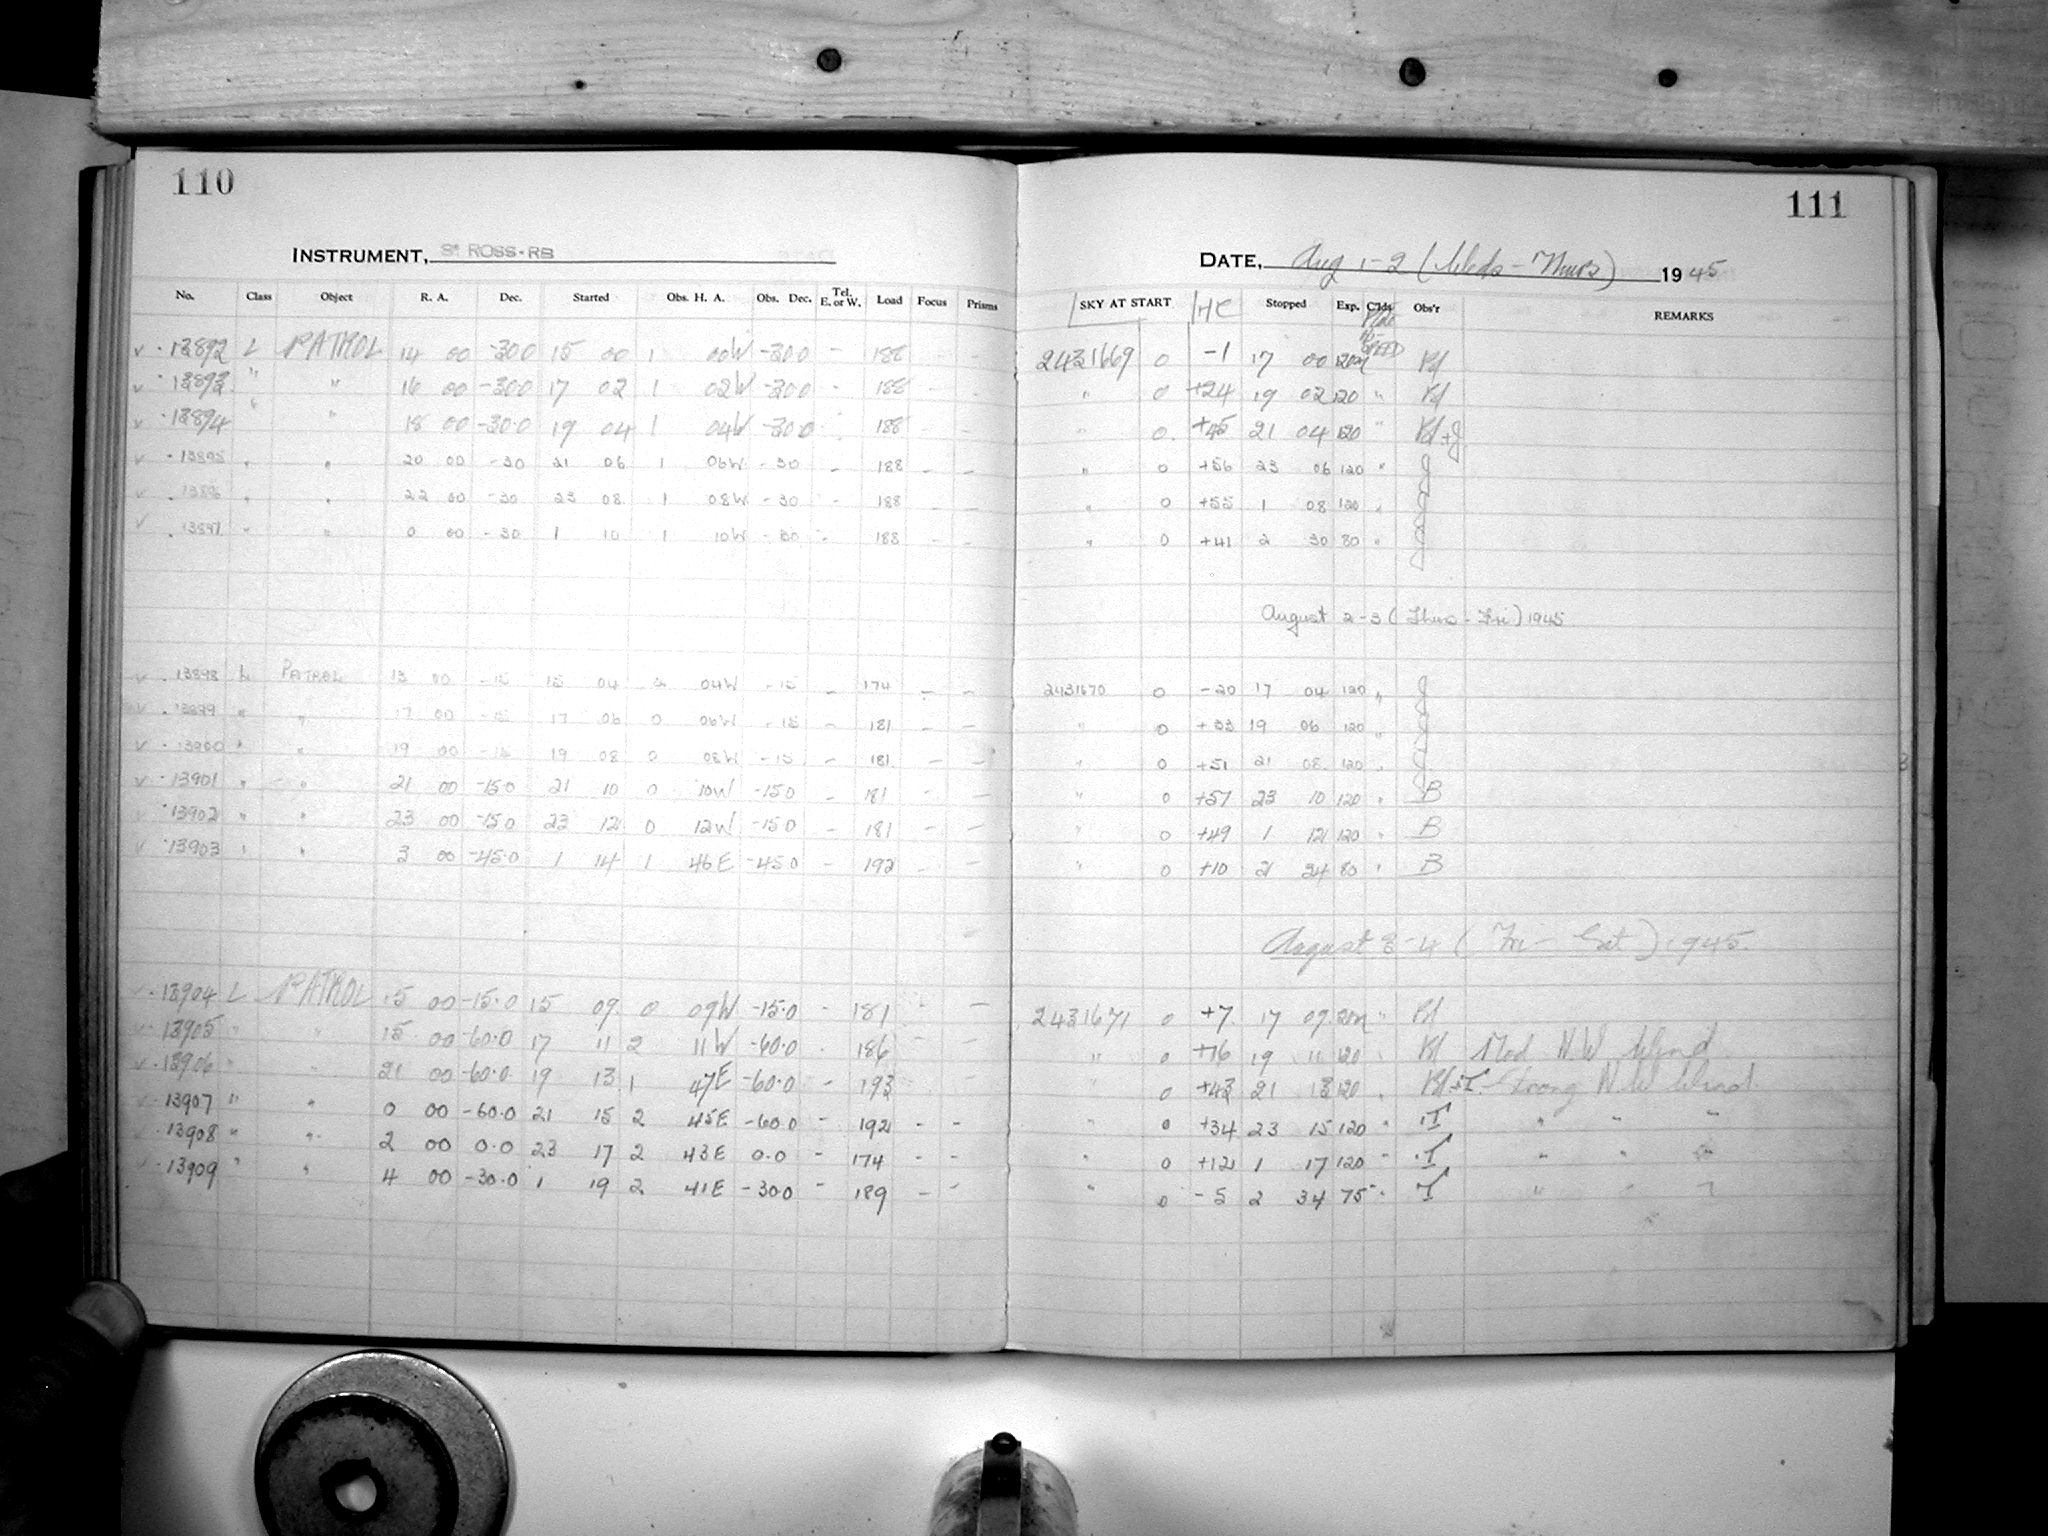 110
INSTRUMENT, 3" ROSS-RB
No. Class Object R. A. Dec. Started Obs. H. A. Obs. Dec. Tel. E. or W. Load Focus Prisms
13892 L PATROL 14 00 -30.0 15 00 1 00W -30.0 - 188
13893 " " 16 00 -30.0 17 02 1 02W -30.0 - 188
13894 " " 18 00 -30.0 19 04 1 04W -30.0 188 -
13895 " " 20 00 -30 21 06 1 06W -30 - 188 - -
13896 " " 22 00 -30 23 08 1 08W -30 - 188 - -
13897 " " 0 00 -30 1 10 1 10W -30 - 188 - -
13898 L PATROL 15 04 04W -15 - 174 - -
13899 " " 17 00 -15 17 06 0 06W -15 - 181 - -
13900 " " 19 00 -15 19 08 0 08W -15 - 181 - -
13901 " " 21 00 -15.0 21 10 0 10W -15.0 - 181 - -
13902 " " 23 00 -15.0 23 12 0 12W -15.0 - 181 - -
13903 " " 3 00 -45.0 1 14 1 46E -45.0 - 192 - -
13904 L PATROL 15 00 -15.0 15 09 0 09W -15.0 - 181 - -
13905 " " 15 00 -60.0 17 11 2 11W -60.0 - 186 - -
13906 " " 21 00 -60.0 19 13 1 47E -60.0 - 193 - -
13907 " " 0 00 -60.0 21 15 2 45E -60.0 - 192 - -
13908 " " 2 00 0.0 23 17 2 43E 0.0 - 174 - -
13909 " " 4 00 -30.0 1 19 2 41E -30.0 - 189 - -
111
DATE, Aug 1-2 (Weds - Thurs) 1945
SKY AT START HC Stopped Exp. C'lds Obs'r REMARKS
SPEED
2431669 0 -1 17 00 120m Bl
" 0 +24 19 02 120 " Bl
" 0 +45 21 04 120 " Bl+J
" 0 +56 23 06 120 " J
" 0 +55 1 08 120 " J
" 0 +41 2 30 80 " J
August 2-3 (Thurs - Fri) 1945
2431670 0 -20 17 04 120 " J
" 0 +33 19 06 120 " J
" 0 +51 21 08 120 " J
" 0 +57 23 10 120 " B
" 0 +49 1 12 120 " B
" 0 +10 2 34 80 " B
August 3-4 (Fri - Sat) 1945.
2431671 0 +7 17 09 120m " Bl
" 0 +16 19 11 120 " Bl Mod N.W Wind
" 0 +43 21 13 120 " Bl+T Strong N.W Wind
" 0 +34 23 15 120 " T " " "
" 0 +12 1 17 120 " T " " "
" 0 -5 2 34 75 " T " " "